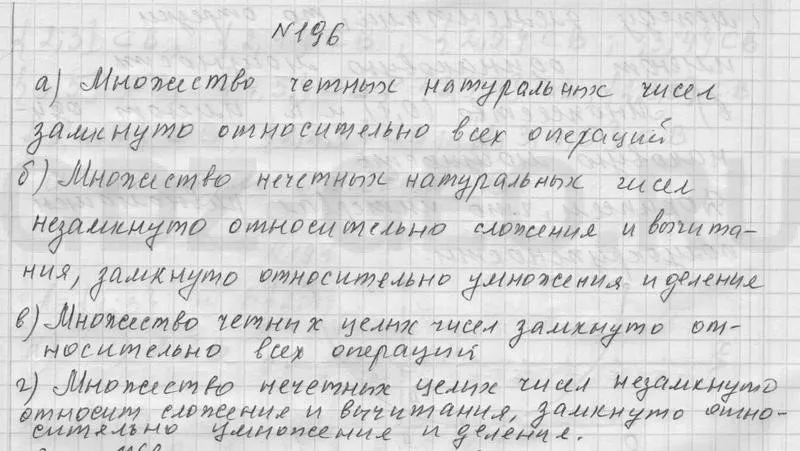 №196
а) Множество четных натуральных чисел
замкнуто относительно всех операций
б) Множество нечетных натуральных чисел
незамкнуто относительно сложения и вычита-
ния, замкнуто относительно умножения и деления
в) Множество четних целых чисел замкнуто от-
носительно всех операций
г) Множество нечетных целих чисел незамкнуто
относит сложения и вычитания, замкнуто отно-
сительно умножения и деления.